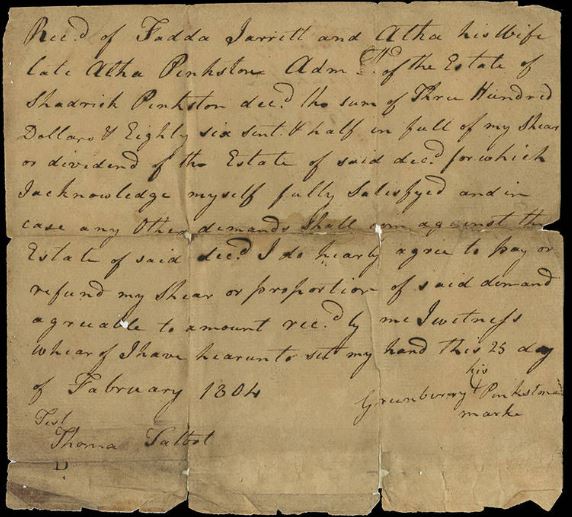 Rec.d of Fadda Jarrett and Atha his Wife
late Atha Pinkston Adm of the Estate of
Shadrick Pinkston dec.d the sum of Three Hundred
Dollars & Eighty six sent & half in full of my Shear
or dividend of the Estate of said dec.d for which
I acknowledge myself fully Satisfyed and in
case any Other demands Shall com against the
Estate of said dec.d I do hearby agree to pay or
refund my Shear or proportion of said demand
agreeable to amount rec.d by me I witness
whearof I have hearunto set my hand this 25 day
of Fabruary 1804
his
Greenberry Pinkston
marke
Test
Thoma Talbot